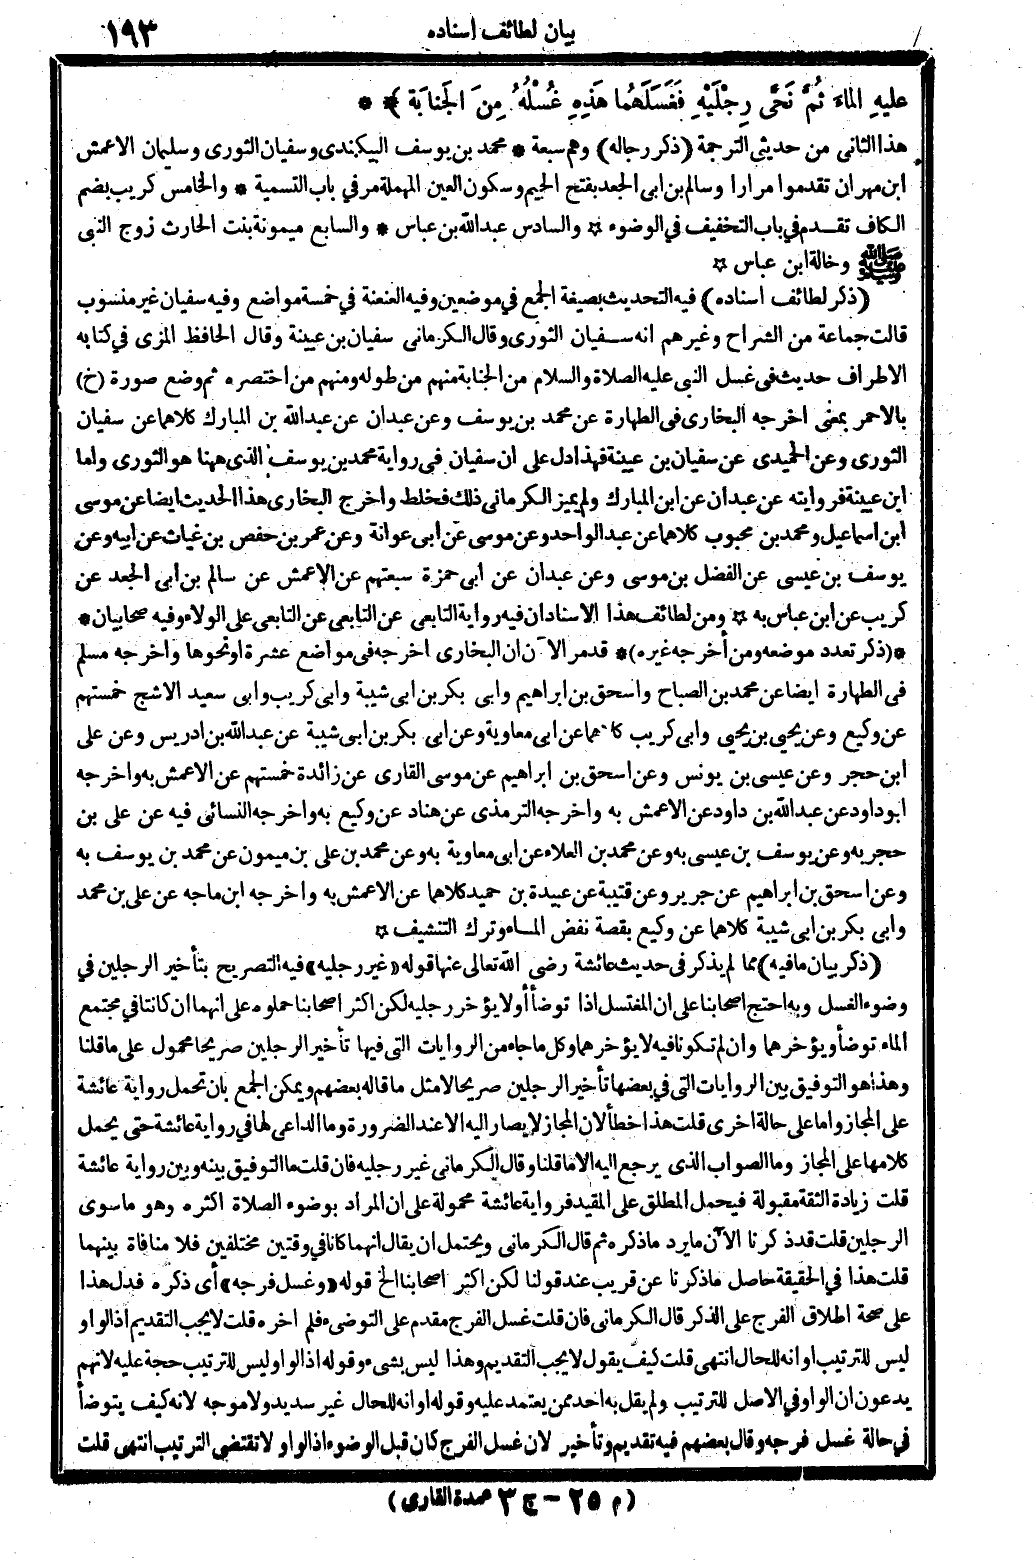 بيان لطائف اسناده
١٩٣
عليهِ الماءَ ثُمَّ نَحَّى رِجْلَيْهِ فَغَسَلَهُما هَذِهِ غُسْلُهُ مِنَ الجَنابَةِ ﴾ * *
هذا الثاني من حديثي الترجمة (ذكر رجاله) وهم سبعة * محمد بن يوسف البيكندى وسفيان الثورى وسليمان الاعمش
ابن مهران تقدموا مرارا وسالم بن ابى الجعد بفتح الجيم وسكون العين المهملة مر في باب التسمية * والخامس كريب بضم
الكاف تقدم في باب التخفيف في الوضوء ☆ والسادس عبدالله بن عباس * والسابع ميمونة بنت الحارث زوج النبى
ﷺ وخالة ابن عباس ☆
(ذكر لطائف اسناده) فيه التحديث بصيغة الجمع في موضعين وفيه العنعنة في خمسة مواضع وفيه سفيان غير منسوب
قالت جماعة من الشراح وغيرهم انه سفيان الثورى وقال الكرمانى سفيان بن عيينة وقال الحافظ المزى في كتابه
الاطراف حديث فى غسل النبى عليه الصلاة والسلام من الجنابة منهم من طوله ومنهم من اختصره ثم وضع صورة (خ)
بالاحمر يعنى اخرجه البخارى فى الطهارة عن محمد بن يوسف وعن عبدان عن عبدالله بن المبارك كلاهما عن سفيان
الثورى وعن الحميدى عن سفيان بن عيينة فهذا دل على ان سفيان فى رواية محمد بن يوسف الذى ههنا هو الثورى واما
ابن عيينة فروايته عن عبدان عن ابن المبارك ولم يميز الكرمانى ذلك فخلط واخرج البخارى هذا الحديث ايضا عن موسى
ابن اسماعيل ومحمد بن محبوب كلاهما عن عبد الواحد وعن موسى عن ابى عوانة وعن عمر بن حفص بن غياث عن ابيه وعن
يوسف بن عيسى عن الفضل بن موسى وعن عبدان عن ابى حمزة سبعتهم عن الاعمش عن سالم بن ابى الجعد عن
كريب عن ابن عباس به ☆ ومن لطائف هذا الاسناد ان فيه رواية التابعى عن التابعى عن التابعى على الولاء وفيه صحابيان *
*(ذكر تعدد موضعه ومن أخرجه غيره)* قد مر الآن ان البخارى اخرجه فى مواضع عشرة او نحوها واخرجه مسلم
فى الطهارة ايضا عن محمد بن الصباح واسحق بن ابراهيم وابى بكر بن ابى شيبة وابى كريب وابى سعيد الاشج خمستهم
عن وكيع وعن يحيى بن يحيى وابى كريب كلاهما عن ابى معاوية وعن ابى بكر بن ابى شيبة عن عبدالله بن ادريس وعن على
ابن حجر وعن عيسى بن يونس وعن اسحق بن ابراهيم عن موسى القارى عن زائدة خمستهم عن الاعمش به واخرجه
ابو داود عن عبدالله بن داود عن الاعمش به واخرجه الترمذى عن هناد عن وكيع به واخرجه النسائى فيه عن على بن
حجر به وعن يوسف بن عيسى به وعن محمد بن العلاء عن ابى معاوية به وعن محمد بن على بن ميمون عن محمد بن يوسف به
وعن اسحق بن ابراهيم عن جرير وعن قتيبة عن عبيدة بن حميد كلاهما عن الاعمش به واخرجه ابن ماجه عن على بن محمد
وابى بكر بن ابى شيبة كلاهما عن وكيع بقصة نفض الماء وترك التنشيف ☆
(ذكر بيان مافيه) مما لم يذكر فى حديث عائشة رضى الله تعالى عنها قوله «غير رجليه» فيه التصريح بتأخير الرجلين في
وضوء الغسل وبه احتج اصحابنا على ان المغتسل اذا توضأ أولا يؤخر رجليه لكن اكثر اصحابنا حملوه على انهما ان كانتا في مجتمع
الماء توضأ ويؤخرهما وان لم تكونا فيه لا يؤخرهما وكل ماجاء من الروايات التى فيها تأخير الرجلين صريحا محمول على ماقلنا
وهذا هو التوفيق بين الروايات التى في بعضها تأخير الرجلين صريحا لا مثل ماقاله بعضهم ويمكن الجمع بان تحمل رواية عائشة
على المجاز واما على حالة اخرى قلت هذا خطأ لان المجاز لا يصار اليه الا عند الضرورة وما الداعى لها في رواية عائشة حتى يحمل
كلامها على المجاز وما الصواب الذى يرجع اليه الا ماقلنا وقال الكرمانى غير رجليه فان قلت ما التوفيق بينه وبين رواية عائشة
قلت زيادة الثقة مقبولة فيحمل المطلق على المقيد فرواية عائشة محمولة على ان المراد بوضوء الصلاة اكثره وهو ماسوى
الرجلين قلت قد ذكرنا الآن مايرد ماذكره ثم قال الكرمانى ويحتمل ان يقال انهما كانا في وقتين مختلفين فلا منافاة بينهما
قلت هذا في الحقيقة حاصل ماذكرنا عن قريب عند قولنا لكن اكثر اصحابنا الخ قوله «وغسل فرجه» أى ذكره فدل هذا
على صحة اطلاق الفرج على الذكر قال الكرمانى فان قلت غسل الفرج مقدم على التوضىء فلم اخره قلت لا يجب التقديم اذ الواو
ليس للترتيب او انه للحال انتهى قلت كيف يقول لا يجب التقديم وهذا ليس بشىء وقوله اذ الواو ليس للترتيب حجة عليه لانهم
يدعون ان الواو في الاصل للترتيب ولم يقل به احد ممن يعتمد عليه وقوله او انه للحال غير سديد ولا موجه لانه كيف يتوضأ
في حالة غسل فرجه وقال بعضهم فيه تقديم وتأخير لان غسل الفرج كان قبل الوضوء اذ الواو لا تقتضى الترتيب انتهى قلت
(م ٢٥ – ج ٣ عمدة القارى)